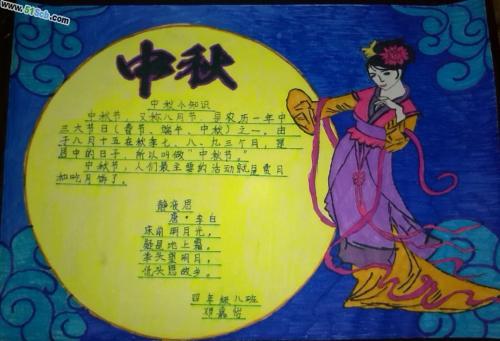 www.51Sch.com
中秋
中秋小知识
中秋节，又称八月节，是农历一年中
三大节日（春节、端午、中秋）之一，由
于八月十五在秋季七、八、九三个月，是
居中的日子，所以叫做“中秋节”。
中秋节，人们最主要的活动就是赏月
和吃月饼了。
静夜思
唐·李白
床前明月光，
疑是地上霜。
举头望明月，
低头思故乡。
四年级八班
邓嘉怡